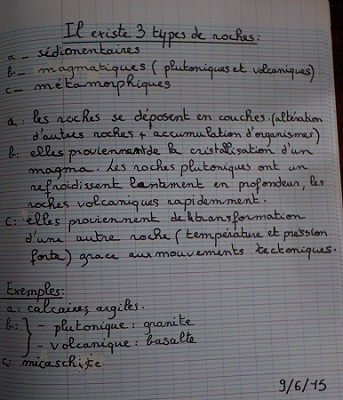 Il existe 3 types de roches:
a_ sédimentaires
b_ magmatiques (plutoniques et volcaniques)
c_ métamorphiques
a: les roches se déposent en couches (altération
d'autres roches + accumulation d'organismes)
b: elles proviennent de la cristallisation d'un
magma. Les roches plutoniques ont un
refroidissent lentement en profondeur, les
roches volcaniques rapidemment.
c: elles proviennent de la transformation
d'une autre roche (température et pression
forte) grace aux mouvements tectoniques.
Exemples:
a: calcaires argiles.
b: } - plutonique: granite
- volcanique: basalte
c: micaschiste
9/6/15